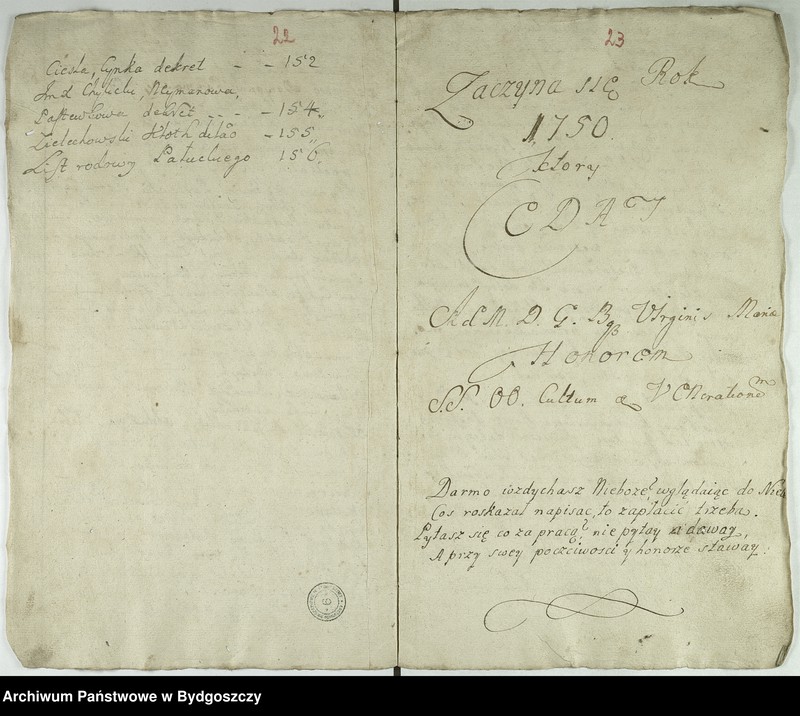 22
Cieśle, Cynka dekret - - 152
Jmd Chylicki, Neymanowa,
Pastewkowa dekret - - - 154.
Zielechowski Kłoth - 155.
List rodowy Pałuckiego 156.
23
Zaczyna się Rok
1750.
ktory
CEDAT
Ad M. D. G. Bqβ Virginis Mariæ
Honorem
S.S. OO. Cultum & VENeration̄e m
Darmo wzdychasz Nieboże, wglądaiąc do
Cos roskazał napisac, to zapłacic trzeba.
Pytasz się co za pracą? nie pytay daway,
A przy swey poczciwosci y honorze staway.
Archiwum Państwowe w Bydgoszczy